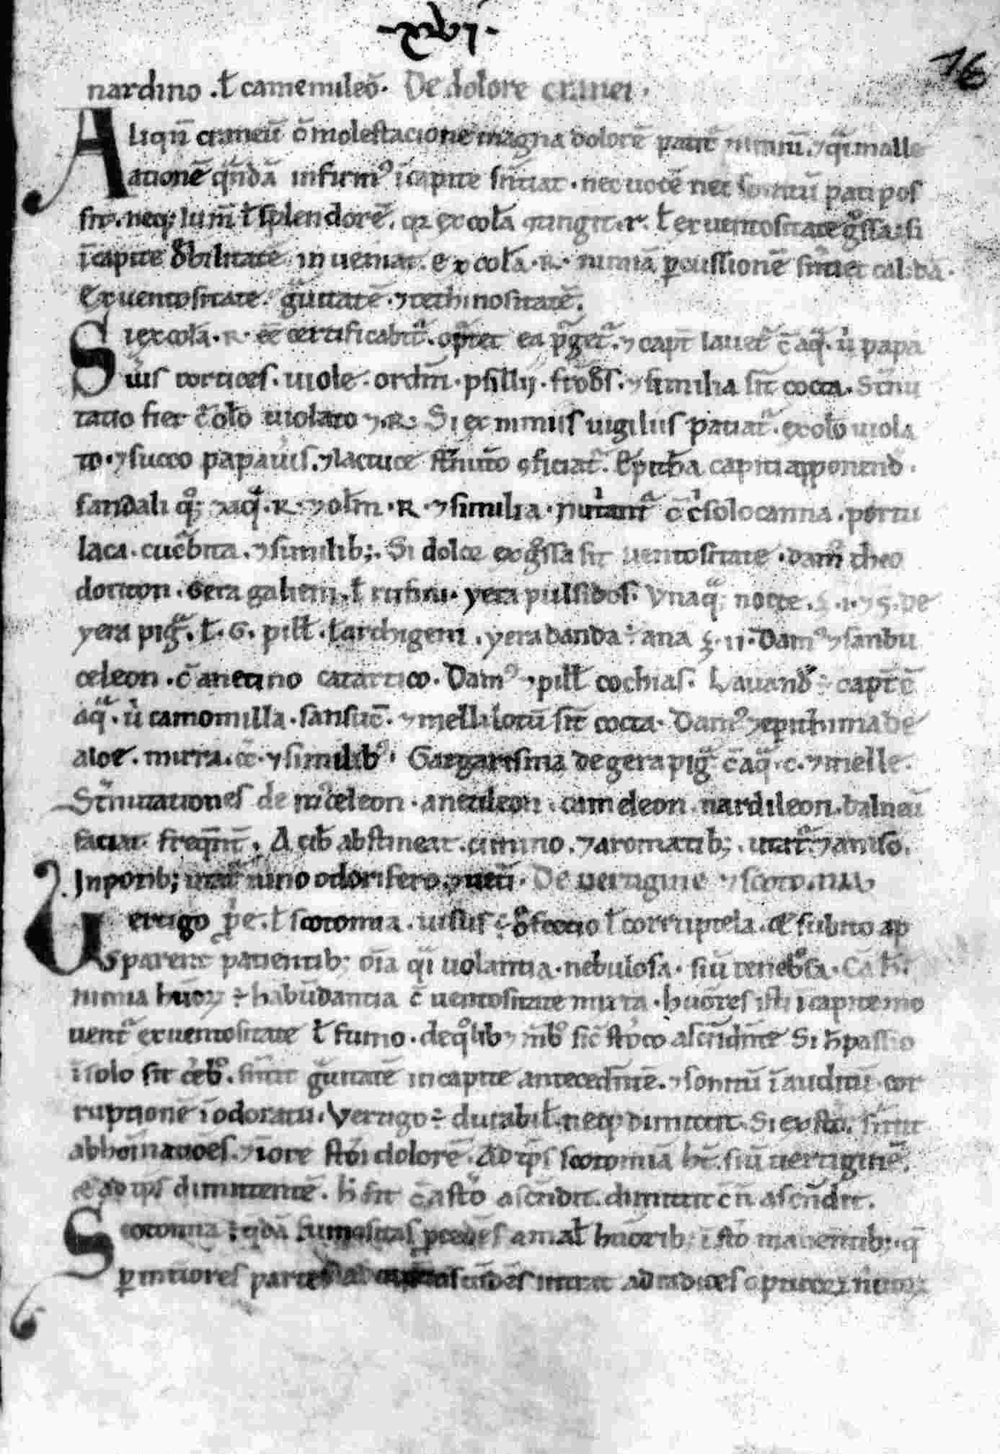 -xvi-
16
nardino .ł camemileō. De dolore cranei.
Aliqn̄ craneū ō molestacione magna dolorē patit᷑ ⁊ nimiū. ⁊ q̄i malle
ationē qn̄dā infirmꝰ ī capite sn̄tiat. nec uocē nec sonitū pati pos
sit. neqꝫ lum̄ ł splendorē. qꝛ ex cola ɼ. ł ex uentositate gͦssa. si
ī capite dꝺbilitatē inueniat. ex cola. R. nimiā ꝑcussionē sn̄tiet calidā.
Ex uentositate. gͣuitatē. ⁊
Si ex cola. R. eē certificabit᷑. oꝑtet ea pͥget᷑. ⁊ capt̄ lauet᷑ c̄ aq̄. ů papa
uis cortices. uiole. ordm̄. psillij. frōdꝭ. ⁊ similia sīt cocta. Stn̄u
tatio fiet c̄ olo uiolato ⁊. R. Si ex nimiis uigiliis patiat᷑. ex olo uiola
to. ⁊ succo papauis. ⁊ lactuce stn̄uto ꝯficiat᷑. Epithā capiti apponend̄.
sandali ⁊ aq̄. R. ⁊ olm̄. R. ⁊ similia. nut᷑ant᷑ portu
laca. cucͦbita. ⁊ similibꝫ. Si dolor ex gͦssa sit uentositate. dam̄ theo
doricon. Gera galieni. ł rufini. yera pulsidos. Vnaq̄qꝫ nocte. De
yera pigͣ. ł. G. pill̄. ł archigeni. yera danda ÷ ana ʒ. ii. Damꝰ ⁊ sanbu
celeon. c̄ anetino catartico. Damꝰ ⁊ pill̄ cochias. Lauand̄ ÷ capt̄ c̄
aq̄. ů camomilla. sansuc̄. ⁊ mellilotū sīt cocta. Damꝰ ⁊ epithima de
aloe. mirra. cͦc̄. ⁊ similibꝰ. Gargarisma de gera pigͣ c̄ aq̄. c. ⁊ melle.
Stn̄utationes de nͥceleon. anetileon. cameleon. nardileon. balneū
faciat freqn̄t᷑. A cib̄ abstineat. cimino. ⁊ aromatibꝫ. utat᷑ ⁊ aniso.
In potibꝫ utat᷑ uino odorifero. De uertigine ⁊ scotomia
Vertigo ꝓpͥe. ł scotomia. uisus ÷ dͦfectio ł corruptela. cū subito ap
parent patientibꝫ oīa q̄i uolantia. nebulosa. siū tenebͦsa. Cā h̄.
nimia huoꝝ ÷ habūdantia c̄ uentositate mixta. huores isti ī capite mo
uent᷑ ex uentositate ł fumo. de qͦlibꝫ mb̄ꝰ sic̄ stoͣco ascn̄dn̄te. Si h̄ passio
ī solo sit cebͦ. sn̄tit gͣuitatē in capite antecedn̄tē. ⁊ sonitū ī auditū. cor
ruptionē ī odoratu. Vertigo ÷ durabil̄. neqꝫ dimittit. Si ex stoͣ. sn̄tit
abhoīnatiōes. ⁊ ī ore stōi dolorē. Ad ip̄s scotomiā hꝫ. siū uertiginē.
⁊ ad ip̄s diminutentē. h̄ sit c̄ a stoͣ ascn̄dit. dimittit c̄ n̄ ascn̄dit.
Scotomia ÷ q̄dā fumositas ꝓcedēs a mal̄ huoribꝫ ī stoͣ manentibꝫ. q̄
ꝑ intiores partes mittit ad radices opticoꝝ nͥuoꝝ